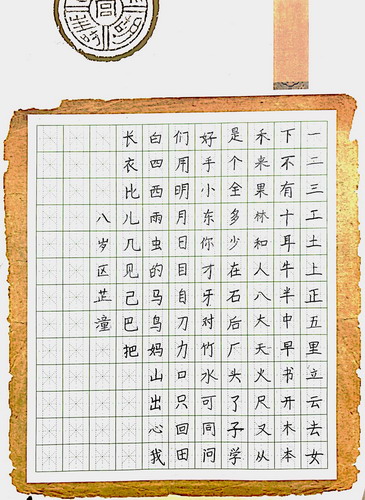 一二三工土上正五里立云去女
下不有十耳牛半中早书开木本
禾米果林和人八大天火尺又从
是个全多少在石后厂头了子学
好手小东你才牙对竹水可同问
们用明月日目自刀力口只回田
白四西雨虫的马鸟妈山出心我
长衣比儿几见己巴把
八岁区芷潼